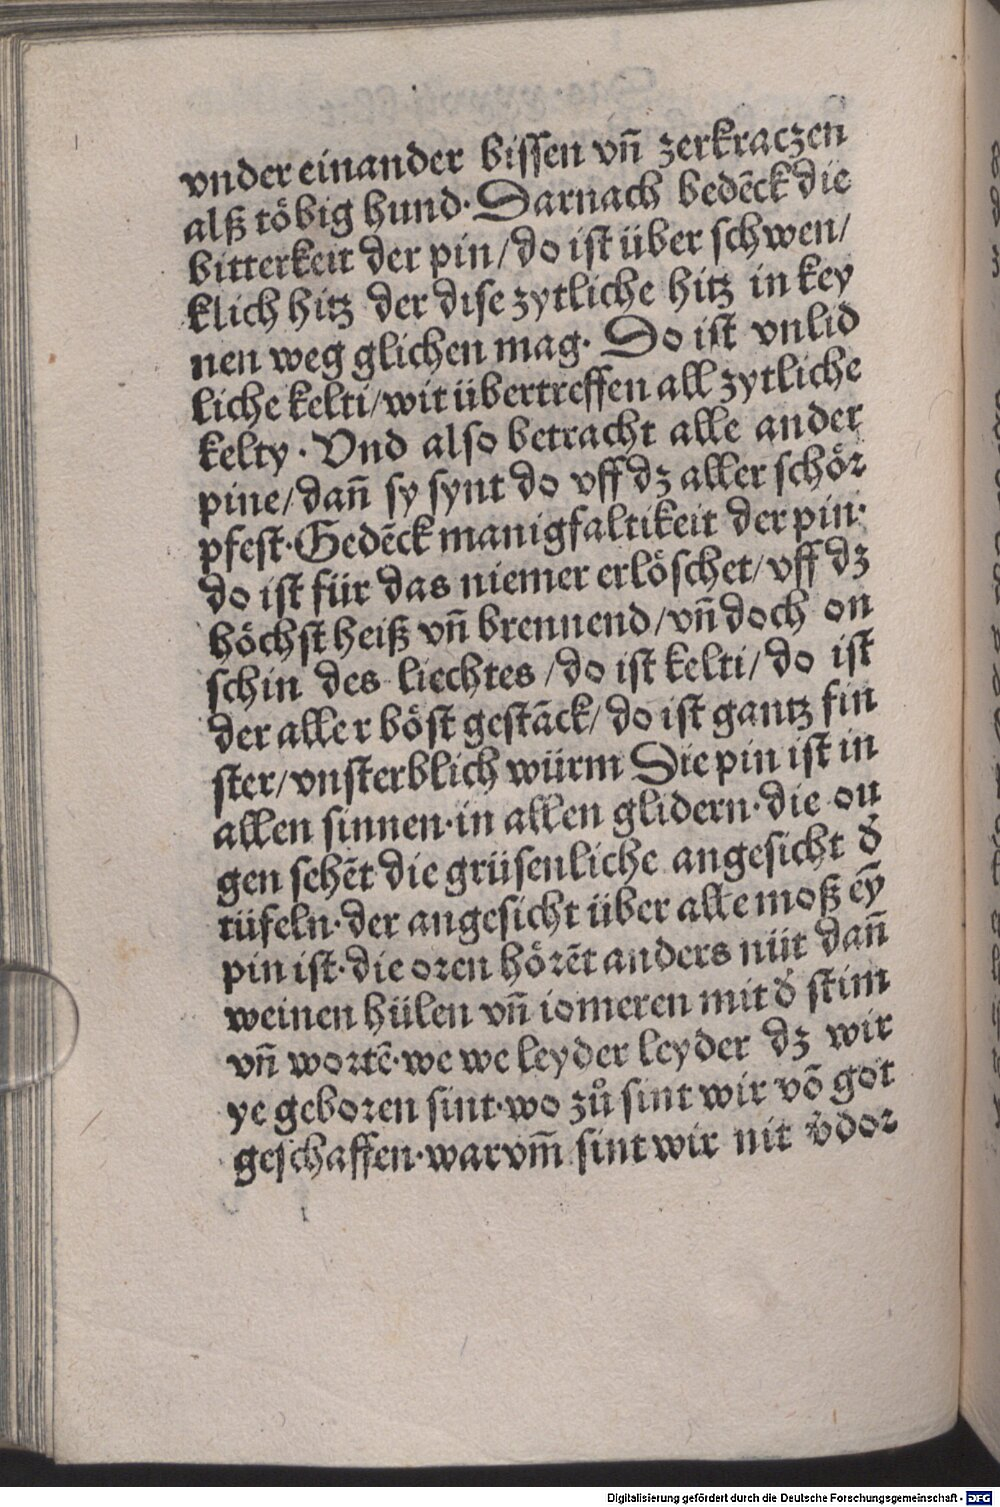 vnder einander bissen vn̄ zerkraczen
alß töbig hund· Darnach bedēck die
bitterkeit der pin/do ist über schwen/
klich hitz der dise zytliche hitz in key
nen weg glichen mag· Do ist vnlid
liche kelti/wit übertreffen all zytliche
kelty· Vnd also betracht alle ander
pine/dan̄ sy synt do vff dz aller schör
pfest·Gedēck manigfaltikeit der pin·
do ist für das niemer erlöschet/vff dz
höchst heiß vn̄ brennend/vn̄ doch on
schin des liechtes/do ist kelti/do ist
der aller böst gestāck/do ist gantz fin
ster/vnsterblich würm Die pin ist in
allen sinnen·in allen glidern·die ou
gen sehēt die grüsenliche angesicht d̓
tüfeln·der angesicht über alle moß eȳ
pin ist·die oren hörēt anders nüt dan̄
weinen hülen vn̄ iomeren mit d̓ stim
vn̄ wortē·we we leyder leyder dz wir
ye geboren sint·wo zů sint wir vō got
geschaffen·warvm̄ sint wir nit v̓dor
Digitalisierung gefördert durch die Deutsche Forschungsgemeinschaft - DFG